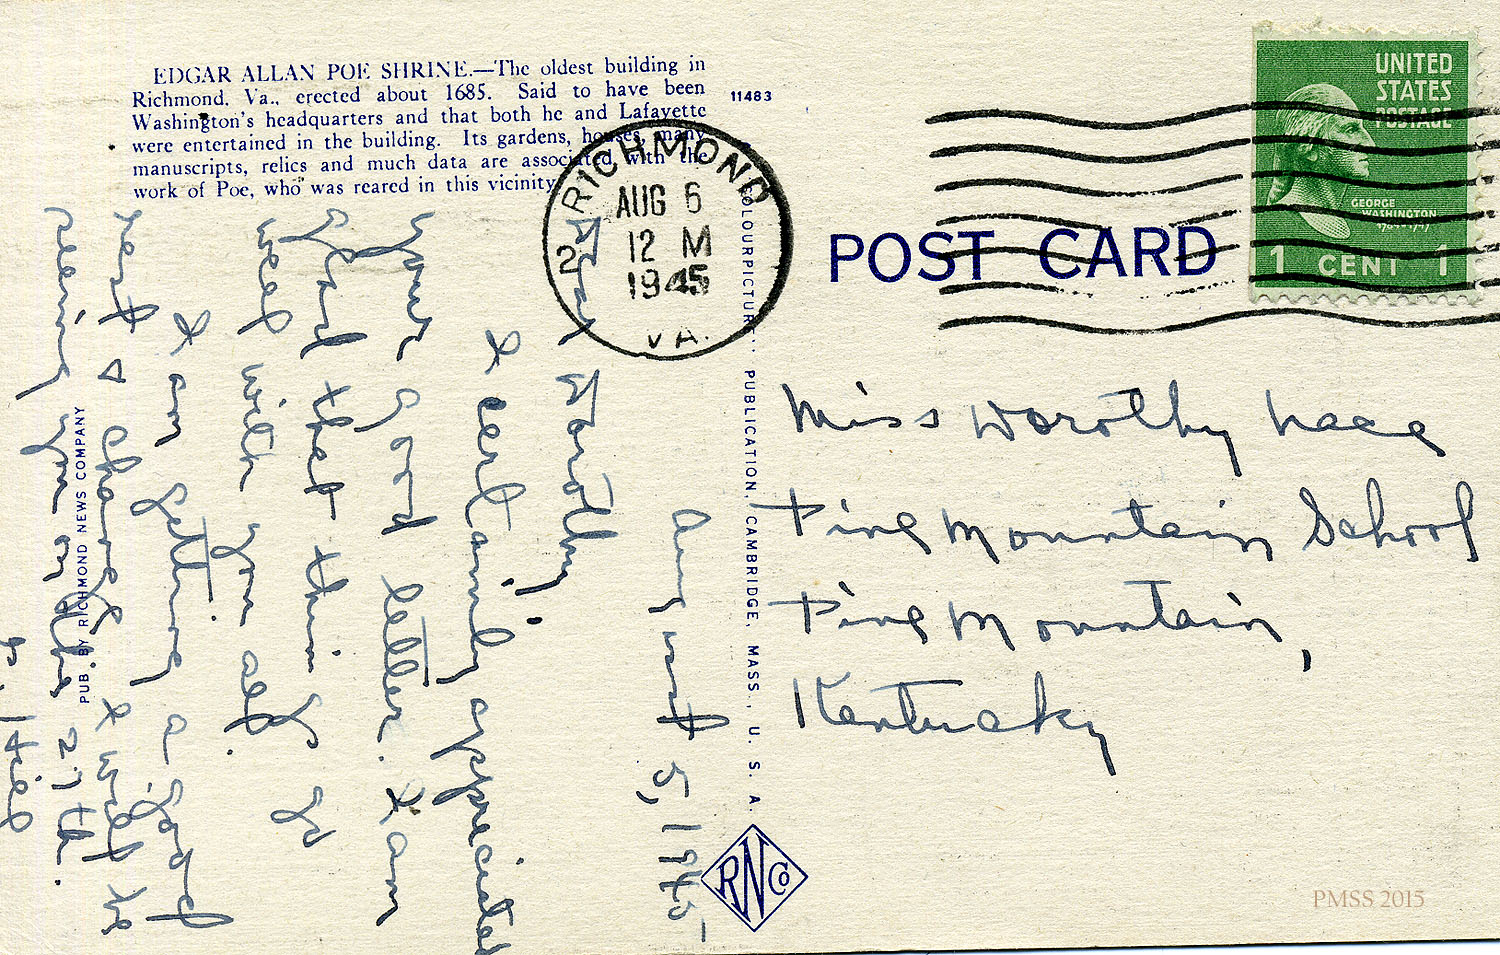 EDGAR ALLAN POE SHRINE.—The oldest building in
Richmond, Va., erected about 1685. Said to have been
Washington's headquarters and that both he and Lafayette
were entertained in the building. Its gardens, houses, many
manuscripts, relics and much data are associated with the
work of Poe, who was reared in this vicinity
11483
RICHMOND
AUG 6
12 M
1945
2
VA.
UNITED
STATES
POSTAGE
GEORGE
WASHINGTON
1 CENT 1
POST CARD
Miss Dorothy Nace
Pine Mountain School
Pine Mountain,
Kentucky
August 5, 1945
Dear Dorothy:
I certainly appreciated
your good letter. I am
glad that things go
well with you all.
I am getting a good
rest &
seeing you on the 27th.
COLOURPICTURE PUBLICATION, CAMBRIDGE, MASS., U. S. A.
PUB. BY RICHMOND NEWS COMPANY
RNCo
PMSS 2015